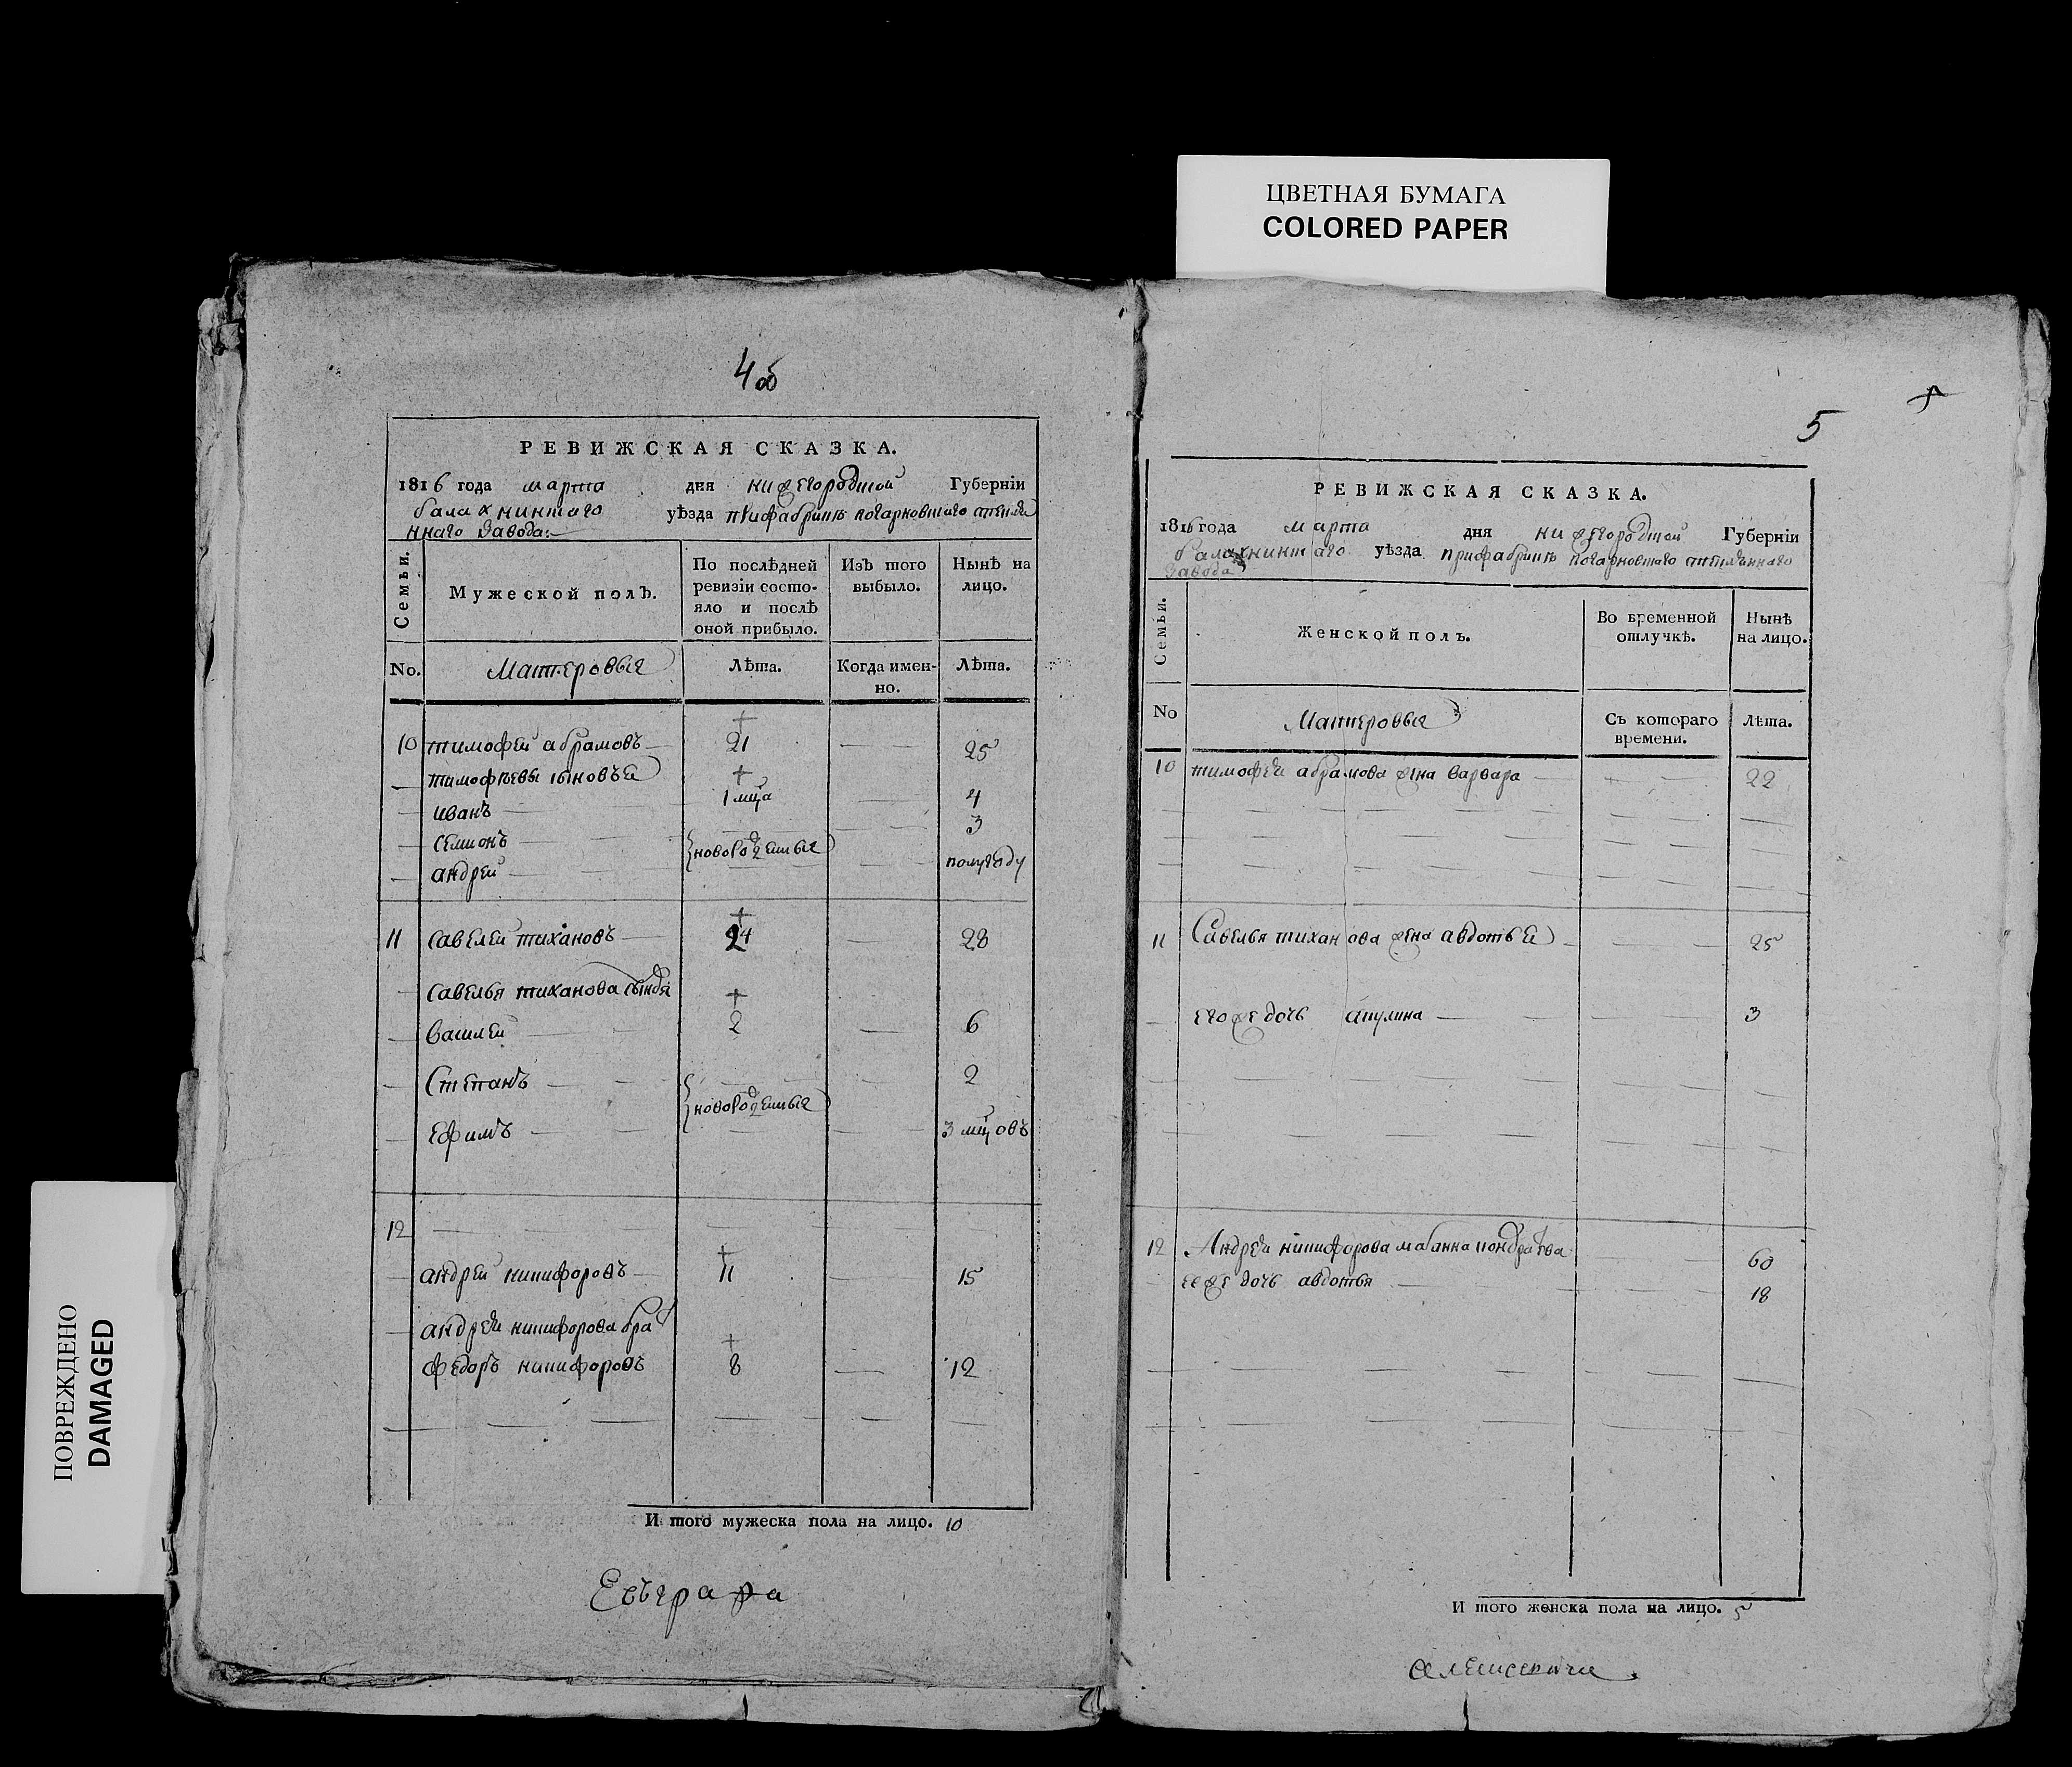 ЦВЕТНАЯ БУМАГА
COLORED PAPER
ПОВРЕЖДЕНО
DAMAGED
4 об
РЕВИЖСКАЯ СКАЗКА.
1816 года марта дня нижегородской Губернiи
балахнинского уѣзда прифабрикѣ
ннаго завода:
Семьи. Мужеской полъ. По послѣдней ревизiи состояло и послѣ оной прибыло. Изъ того выбыло. Нынѣ на лицо.
No. Мастеровые Лѣта. Когда именно. Лѣта.
10 тимофей абрамовъ 21 25
тимофѣевы сыновья
иванъ 1 мца 4
семионъ 3
новорожденные
андрей полугоду
11 савелей тихановъ 24 28
савелья тиханова
василей 2 6
Степанъ 2
новорожденные
ефимъ 3 мцовъ
12
андрей никифоровъ 11 15
андрей никифорова брат
федоръ никифоровъ 8 12
И того мужеска пола на лицо. 10
Евграфа
5
РЕВИЖСКАЯ СКАЗКА.
1816 года марта дня нижегородской Губернiи
балахнинскаго уѣзда прифабрикѣ
завода
Семьи. Женской полъ. Во временной отлучкѣ. Нынѣ на лицо.
No Мастеровые Съ котораго времени. Лѣта.
10 тимофея абрамова жена варвара 22
11 Савелья тиханова жена авдотья 25
его же дочь акулина 3
12 Андрея никифорова мать анна кондратева 60
ее же дочь авдотья 18
И того женска пола на лицо. 5